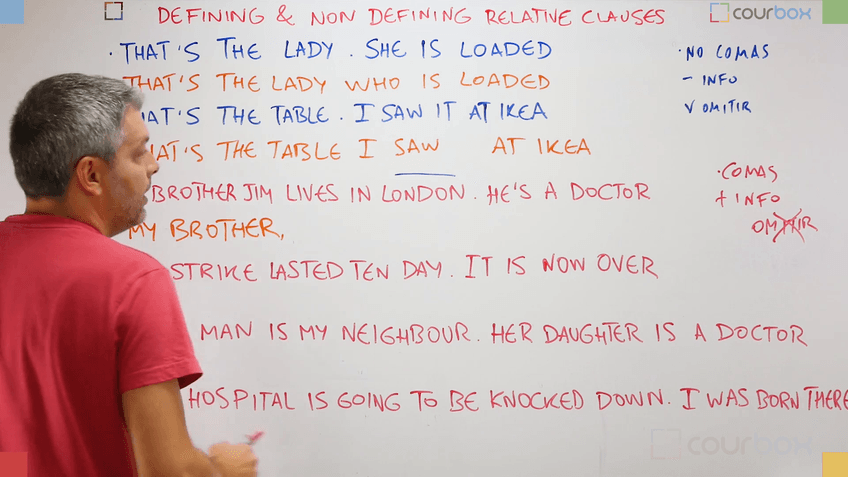 DEFINING & NON DEFINING RELATIVE CLAUSES
courbox
· THAT'S THE LADY. SHE IS LOADED
THAT'S THE LADY WHO IS LOADED
THAT'S THE TABLE. I SAW IT AT IKEA
THAT'S THE TABLE I SAW AT IKEA
BROTHER JIM LIVES IN LONDON. HE'S A DOCTOR
MY BROTHER,
STRIKE LASTED TEN DAY. IT IS NOW OVER
MAN IS MY NEIGHBOUR. HER DAUGHTER IS A DOCTOR
HOSPITAL IS GOING TO BE KNOCKED DOWN. I WAS BORN THERE
· NO COMAS
- INFO
V OMITIR
· COMAS
+ INFO
OMITIR
courbox